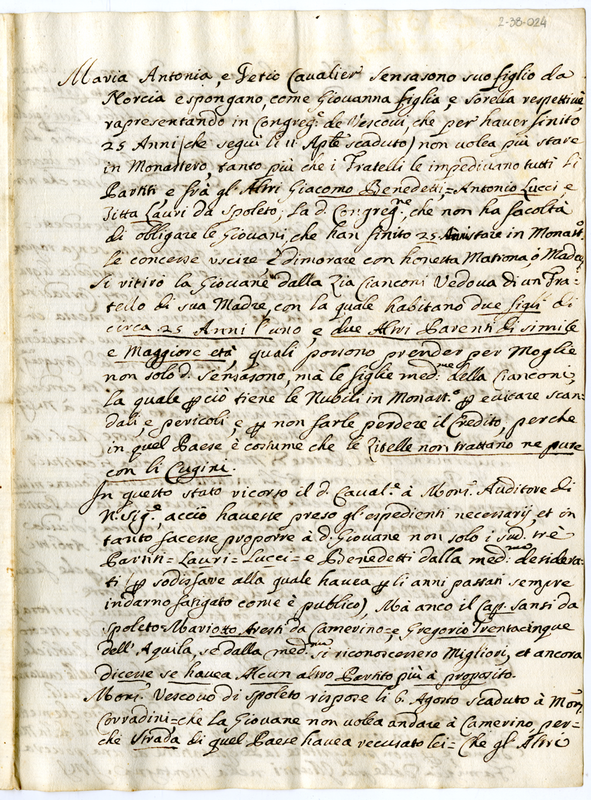 2-38-024
Maria Antonia, e Tetio Cavalier Sensasono suo figlio da
Norcia espongano, come Giovanna figlia e sorella respettive
rapresentando in Congreg.e de Vescovi, che per haver finito
25 Anni (che seguì li 11 Aple scaduto) non volea più stare
in Monastero, tanto più che i Fratelli le impedivano tutti li
Partiti e frà gl'Altri Giacomo Benedetti,=Antonio Lucci e
Titta Lauri da Spoleto; La d. Congreg.ne, che non ha facoltà
di obligare le Giovani, che han finito 25 Anni stare in Monast.o
le concesse uscire, e dimorare con honesta Matrona, ò Madre
Si ritirò la Giovane dalla Zia Cianconi Vedova di un Fra=
tello di sua Madre, con la quale habitano due figli di
circa 25 Anni l'uno, e due Altri Parenti di simile
e Maggiore età, quali possono prender per Moglie
non solo d. Sensasono, ma le figlie med.me della Cianconi,
la quale pciò tiene le Nubili in Monast.o p evitare scan=
dali, e pericoli, e p non farle perdere il Credito, perche
in quel Paese è costume che le Zitelle non trattano ne pure
con li Cugini.
In questo stato ricorse il d. Caval.e à Mons. Auditore di
N. Sig.e, acciò havesse preso gl'espedienti necessarij, et in
tanto facesse proporre à d. Giovane non solo i sud. trè
Partiti= Lauri= Lucci= e Benedetti dalla med.ma desidera=
ti (p sodisfare alla quale havea p li anni passati sempre
indarno fatigato come è publico), Mà anco il Cap. Sansi da
Spoleto= Mariotto da Camerino= e Gregorio Trentacinque
dell'Aquila, se dalla med.ma si riconoscessero Migliori, et ancora
dicesse se havea Alcun altro Partito più à proposito.
Mons. Vescovo di Spoleto rispose li 6. Agosto scaduto à Mons.
Corradini=che la Giovane non volea andare à Camerino per=
chè strada di quel Paese havea recusato lei= Che gl'Altri